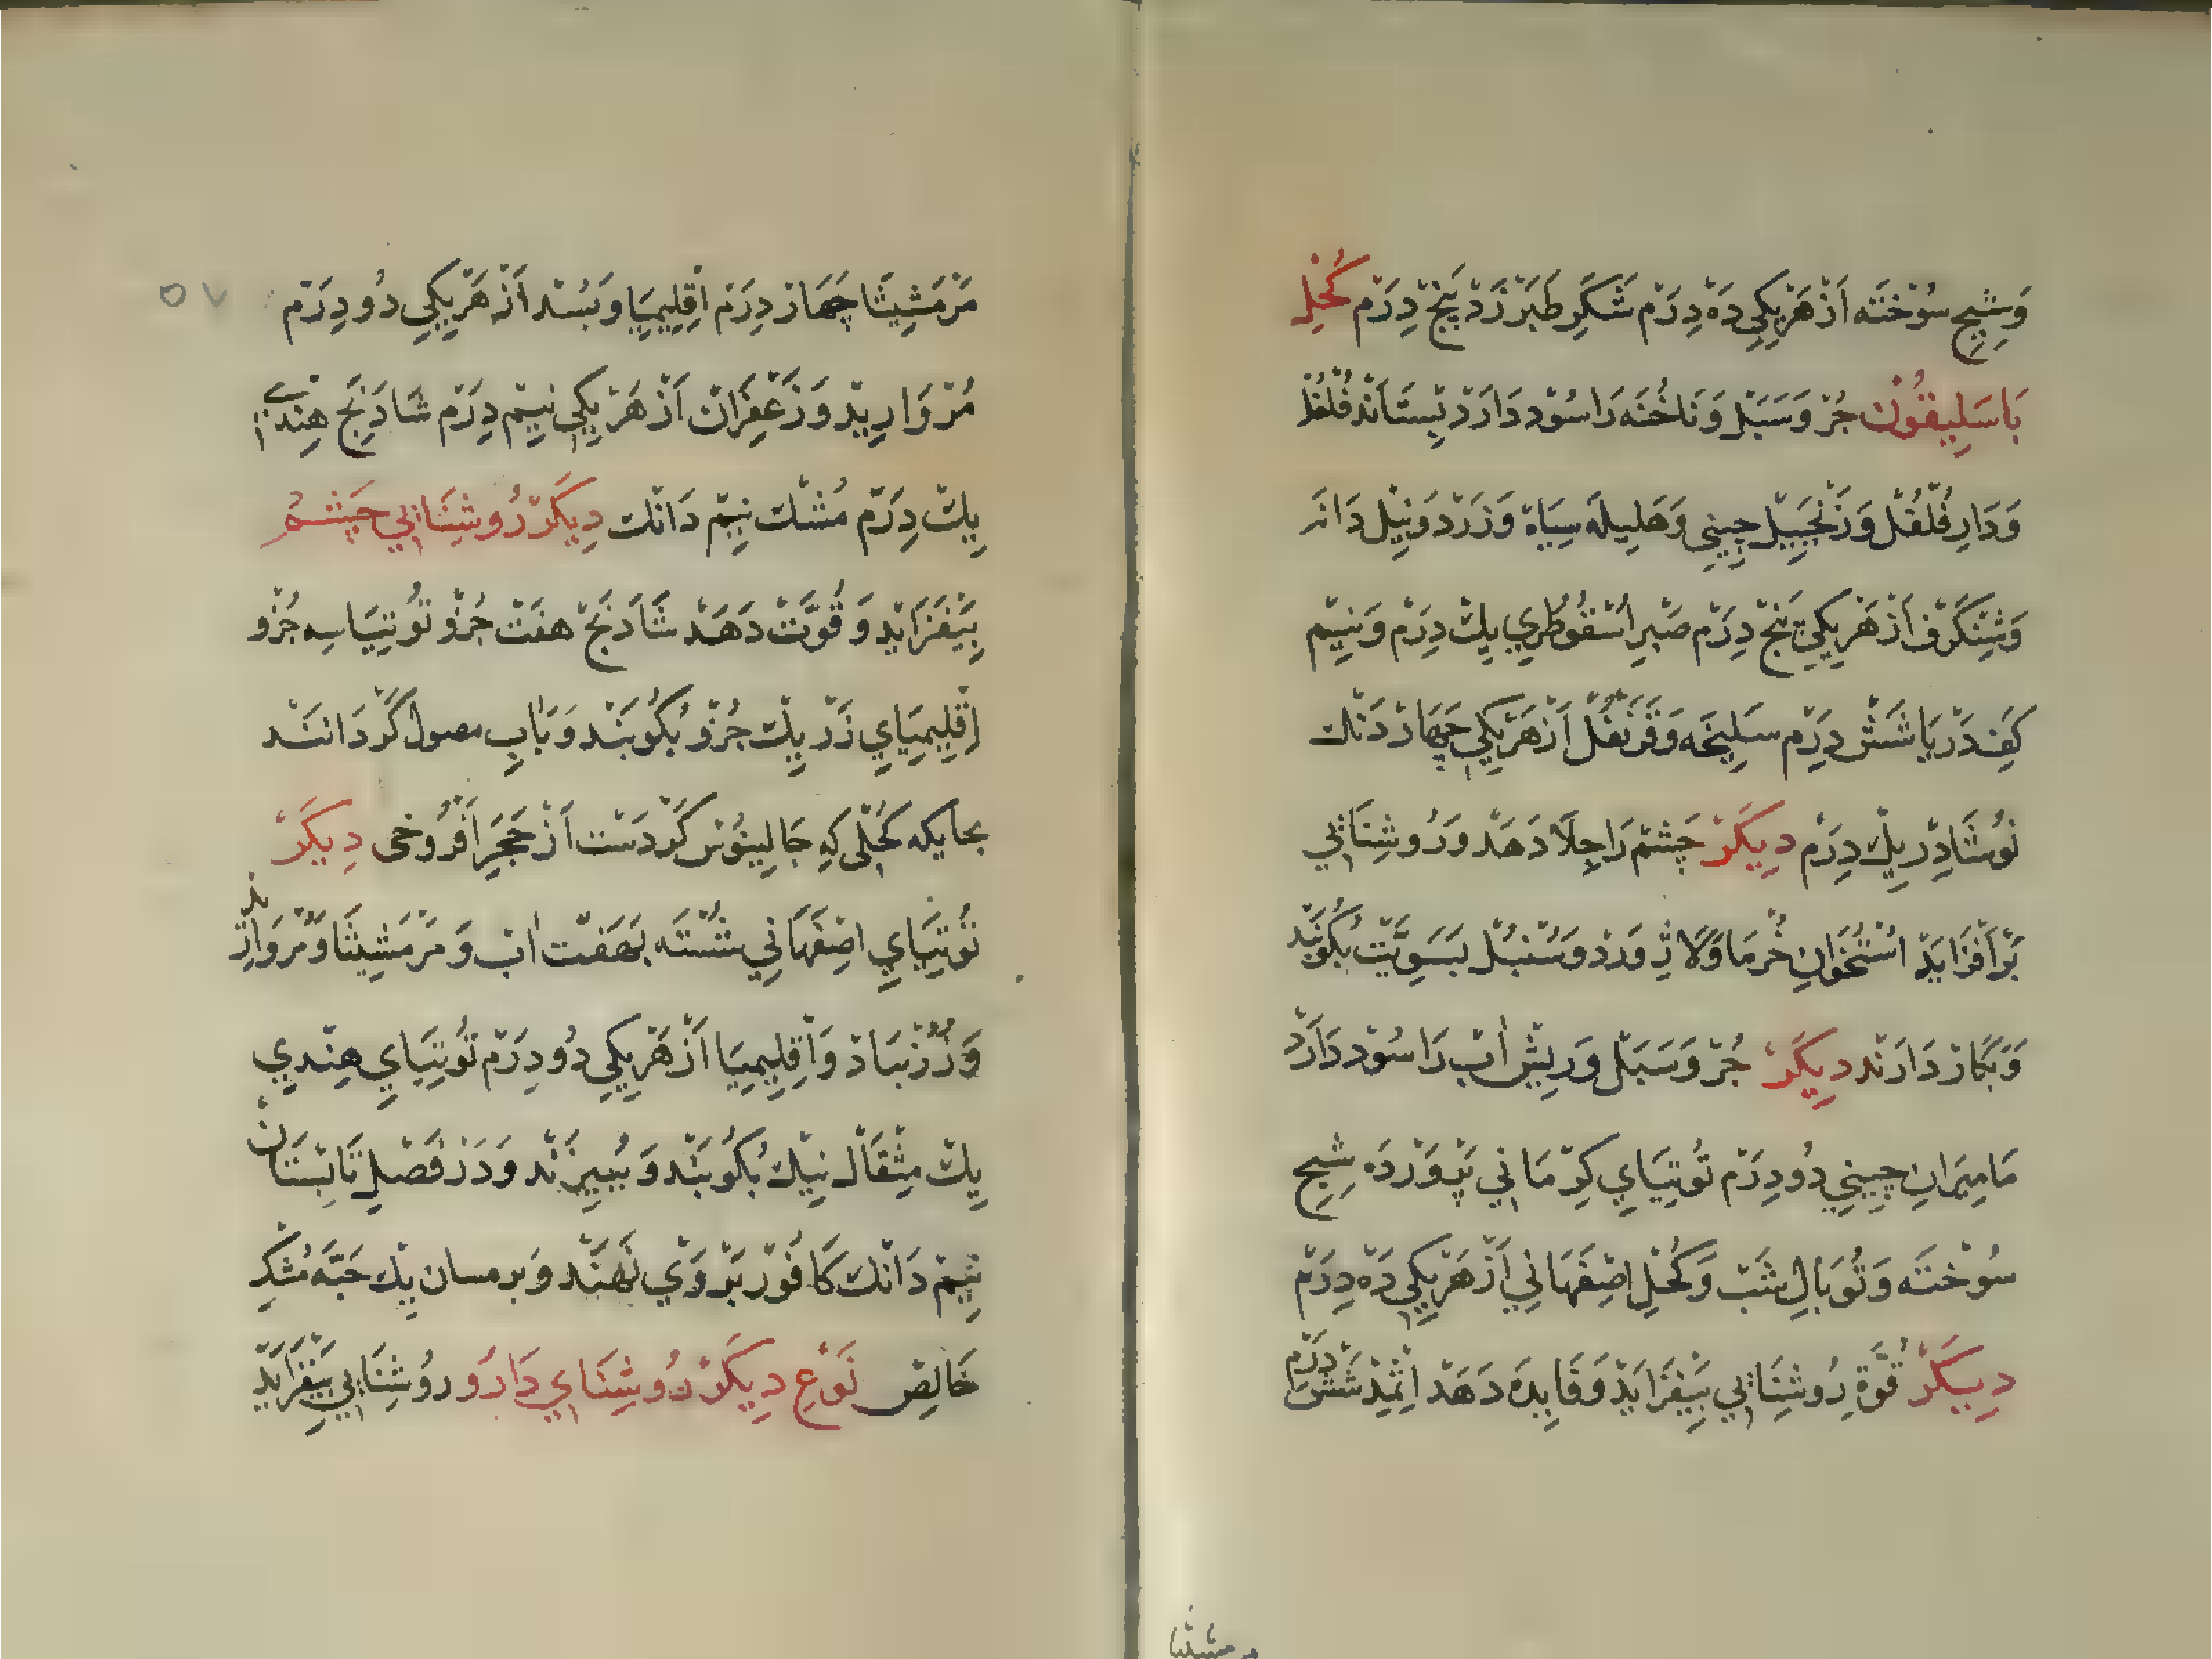 وَشِیحِ سُوْخْتَه اَزْ هَرْیِکِي دَهْ دِرَمْ شَکَرِ طَبَرْزَدْ پَنْجْ دِرَمْ کُحْلِ
بَاسَلِیقُوْن جُرْ وَسَبَلْ وَنَاخُنَه رَا سُوْد دَارَدْ بِسْتَانَنْد فُلْفُلْ
وَدَارِ فُلْفُلْ وَزَنْجَبِیْل چِینِي وَهَلِیلَه سِیَاهْ وَزَرْد وَنِیْل دَانَه
وَشِنْگَرْف اَزْ هَرْیِکِي پَنْجْ دِرَمْ صَبْرِ اُسْقُوطْرِي یِكْ دِرَمْ وَنِیْم
کَفِ دَرْیَا شَشْ دِرَمْ سَلِیخَه وَقَرَنْفُلْ اَزْ هَرْیِکِي چَهَارْ دَنْك
نُوْشَادِرْ یِكْ دِرَمْ دِیگَرْ چَشْمْ رَا جِلَا دَهَدْ وَرُوشِنَائِي
بَرْاَفْزَایَدْ اُسْتُخْوَانِ خُرْمَا وَلَاژْوَرْدْ وَسُنْبُلْ بَسَوِیَّتْ بُکُوْبَنْد
وَبَکَارْ دَارَنْد دِیگَرْ جُرْ وَسَبَلْ وَرِیْشْ اٰبْ رَا سُوْد دَارَدْ
مَامِیرَانِ چِینِي دُو دِرَمْ تُوْتِیَايِ کِرْمَانِي پَرْوَرْدَه شِیحِ
سُوْخْتَه وَتُوْبَالِ شَبْ وَکُحْلِ اِصْفَهَانِي اَزْ هَرْیِکِي دَهْ دِرَمْ
دِیگَرْ قُوَّةِ رُوشِنَائِي بِیَفْزَایَدْ وَفَایِدَه دَهَدْ اِثْمِدْ شَشْ دِرَمْ
مرمشیثا
مَرْمَشِیثَا چَهَارْ دِرَمْ اِقْلِیمِیَا وَبُسَّد اَزْ هَرْیِکِي دُو دِرَمْ
مُرْوَارِیْد وَزَعْفِرَانْ اَزْ هَرْیِکِي نِیْم دِرَمْ شَادَنَجِ هِنْدِي
یِكْ دِرَمْ مُشْك نِیْم دَانْك دِیگَرْ رُوشِنَائِي چَشْم
بِیَفْزَایَد وَقُوَّتْ دَهَدْ شَادَنَجْ هفتْ جُزْو تُوْتِیَا سه جُزْو
اِقْلِیمِیَايِ زَرْ یِكْ جُزْو بُکُوبَنْد وَبَابِ مصول گَرْدَانَنْد
بجایکه کُحْلِی کِه جَالِینُوْس کَرْدَسْت اَزْ حَجَرِ اَفْرُوخی دِیگَرْ
تُوْتِیَايِ اِصْفَهَانِي شُسْتَه بَهَفْت اٰب وَمَرْمَشِیثَا وَمُرْوَارِیْد
وَزُرُنْبَادْ وَاِقْلِیمِیَا اَزْ هَرْیِکِي دُو دِرَمْ تُوْتِیَايِ هِنْدِي
یِكْ مِثْقَالْ نِیْك بُکُوْبَنْد وَبِبِیزَنْد وَدَرْ فَصْلِ تَابِسْتَانْ
نِیْم دَانْك کَافُوْر بَرْ وَيْ نَهَنْد وَبر مسان یِك حَبَّه مُشْكِ
خَالِصْ نَوْعِ دِیگَرْ رُوشِنَايِ دَارُو رُوشِنَائِي بِیَفْزَایَد